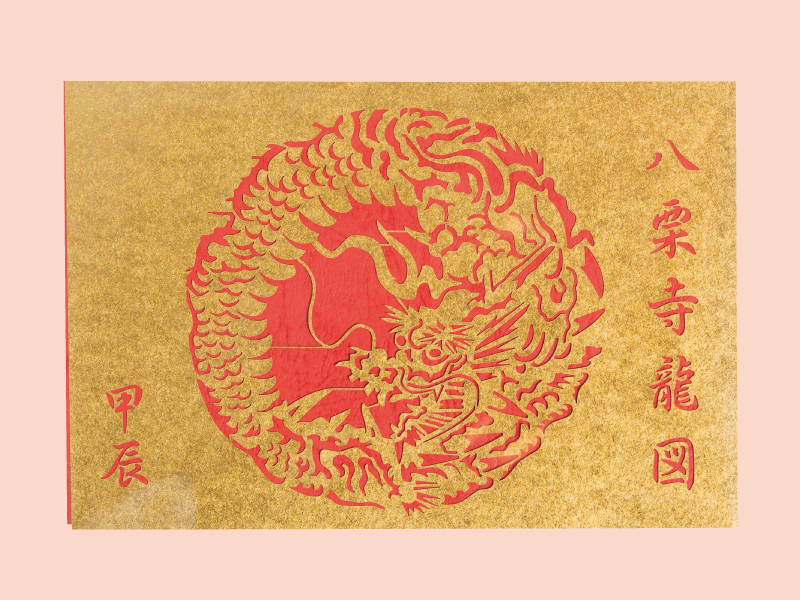 八栗寺龍図
甲辰